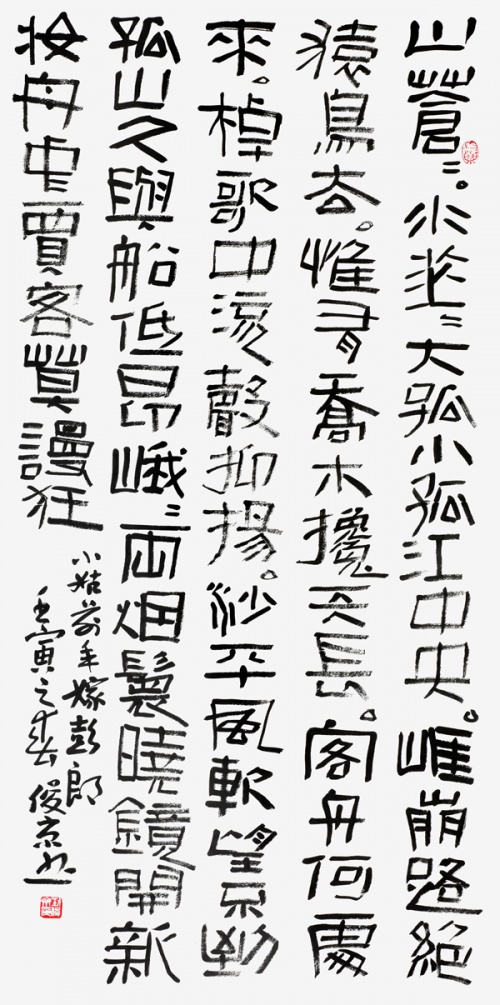 山蒼〻。水茫〻大孤小孤江中央。崖崩路絕
猿鳥去。惟有喬木攙天長。客舟何處
來。棹歌中流聲抑揚。沙平風軟望不到
孤山久與船低昂峨〻兩烟鬟曉鏡開新
妝舟中賈客莫謾狂
小姑前年嫁彭郎
壬寅之春俊京